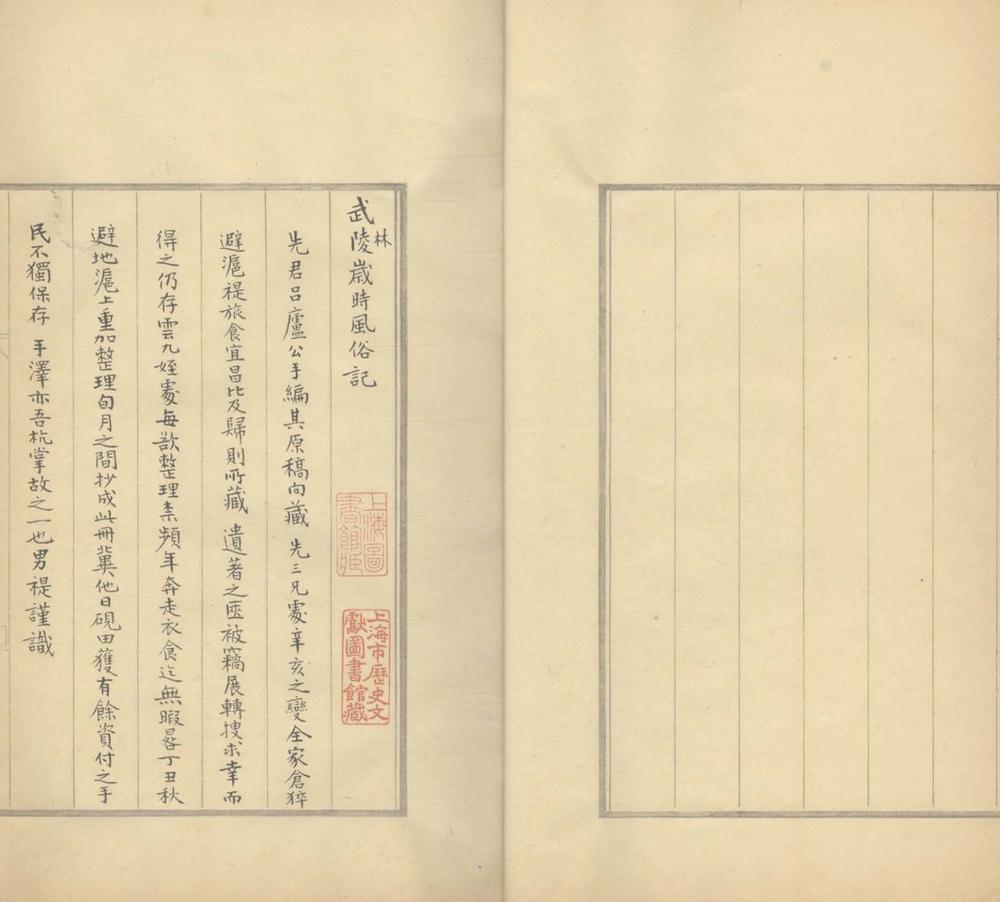 武陵歲時風俗記
林
先君呂廬公手編其原稿向藏 先三兄處辛亥之變全家倉猝
避滬禔旅食宜昌比及歸則所藏 遺著之匧被竊展轉搜求幸而
得之仍存雲九姪處每欲整理柰頻年奔走衣食迄無暇晷丁丑秋
避地滬上重加整理旬月之間抄成此冊冀他日硯田獲有餘資付之手
民不獨保存 手澤亦吾杭掌故之一也男禔謹識
上海圖
書館藏
上海市歷史文
獻圖書館藏